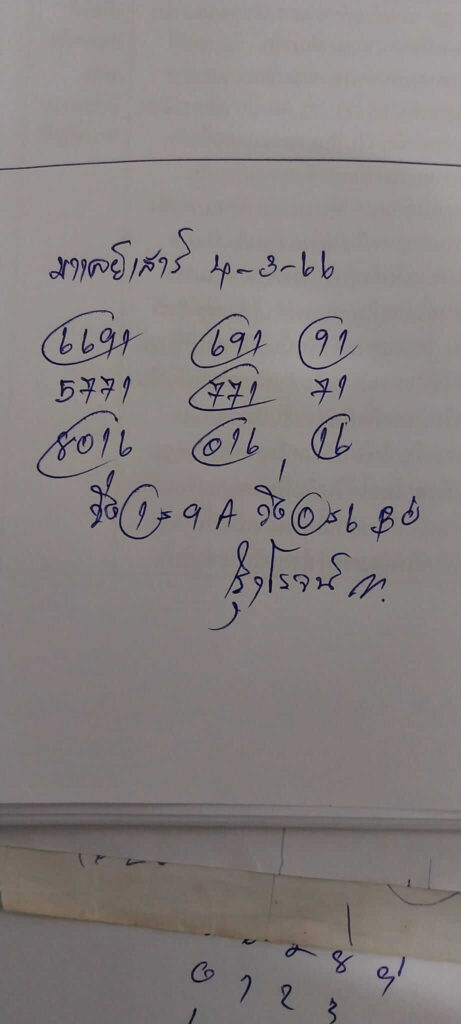 มาเลย์เสาร์ 4-3-66
6691 691 91
5771 771 71
8016 016 16
วิ่ง 1 = 9 A วิ่ง 0 = 6 B
รุ่งโรจน์
0 1 2 3